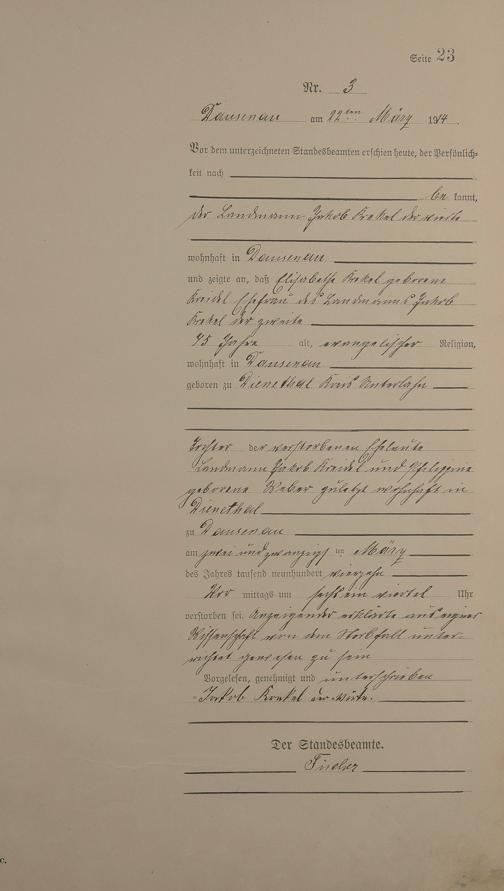 Seite 23
Nr. 3
Dausenau am 22ten März 1914
Vor dem unterzeichneten Standesbeamten erschien heute, der Persönlich-
keit nach
be kannt,
der Landmann Jakob Krekel der vierte
wohnhaft in Dausenau
und zeigte an, daß Elisabethe Krekel geborene
Kreidel Ehefrau des Landmanns Jakob
Krekel der zweite
75 Jahre alt, evangelischer Religion,
wohnhaft in Dausenau
geboren zu Dienethal Kreis Unterlahn
Tochter der verstorbenen Eheleute
Landmann Jakob Kreidel und Philippine
geborene Weber zuletzt wohnhaft in
Dienethal
zu Dausenau
am zwei und zwanzigsten März
des Jahres tausend neunhundert vierzehn
Vor mittags um sechs ein viertel Uhr
verstorben sei. Anzeigender erklärte aus eigner
Wissenschaft von dem Sterbfall unter-
richtet gewesen zu sein
Vorgelesen, genehmigt und unterschrieben
Jakob Krekel der vierte.
Der Standesbeamte.
Fischer
c.